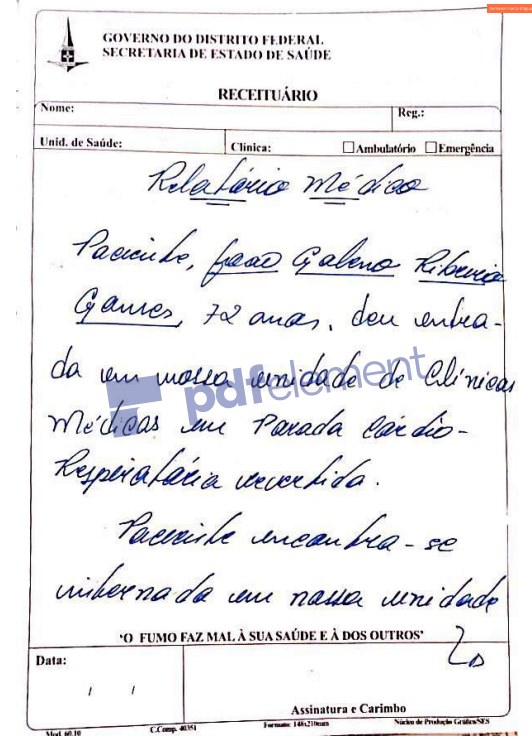 GOVERNO DO DISTRITO FEDERAL
SECRETARIA DE ESTADO DE SAÚDE
RECEITUÁRIO
Nome:
Reg.:
Unid. de Saúde:
Clínica:
Ambulatório
Emergência
Relatório Médico
Paciente, João Galeno Ribeiro
72 anos, deu entra-
da em nossa unidade de Clínicas
Médicas em Parada Cárdio-
Respiratória revertida.
Paciente encontra-se
internada em nossa unidade
pdfelement
'O FUMO FAZ MAL À SUA SAÚDE E À DOS OUTROS'
Data:
/ /
Assinatura e Carimbo
Mod. 60.10
C.Comp. 40351
Formato: 148x210mm
Núcleo de Produção Gráfica/SES